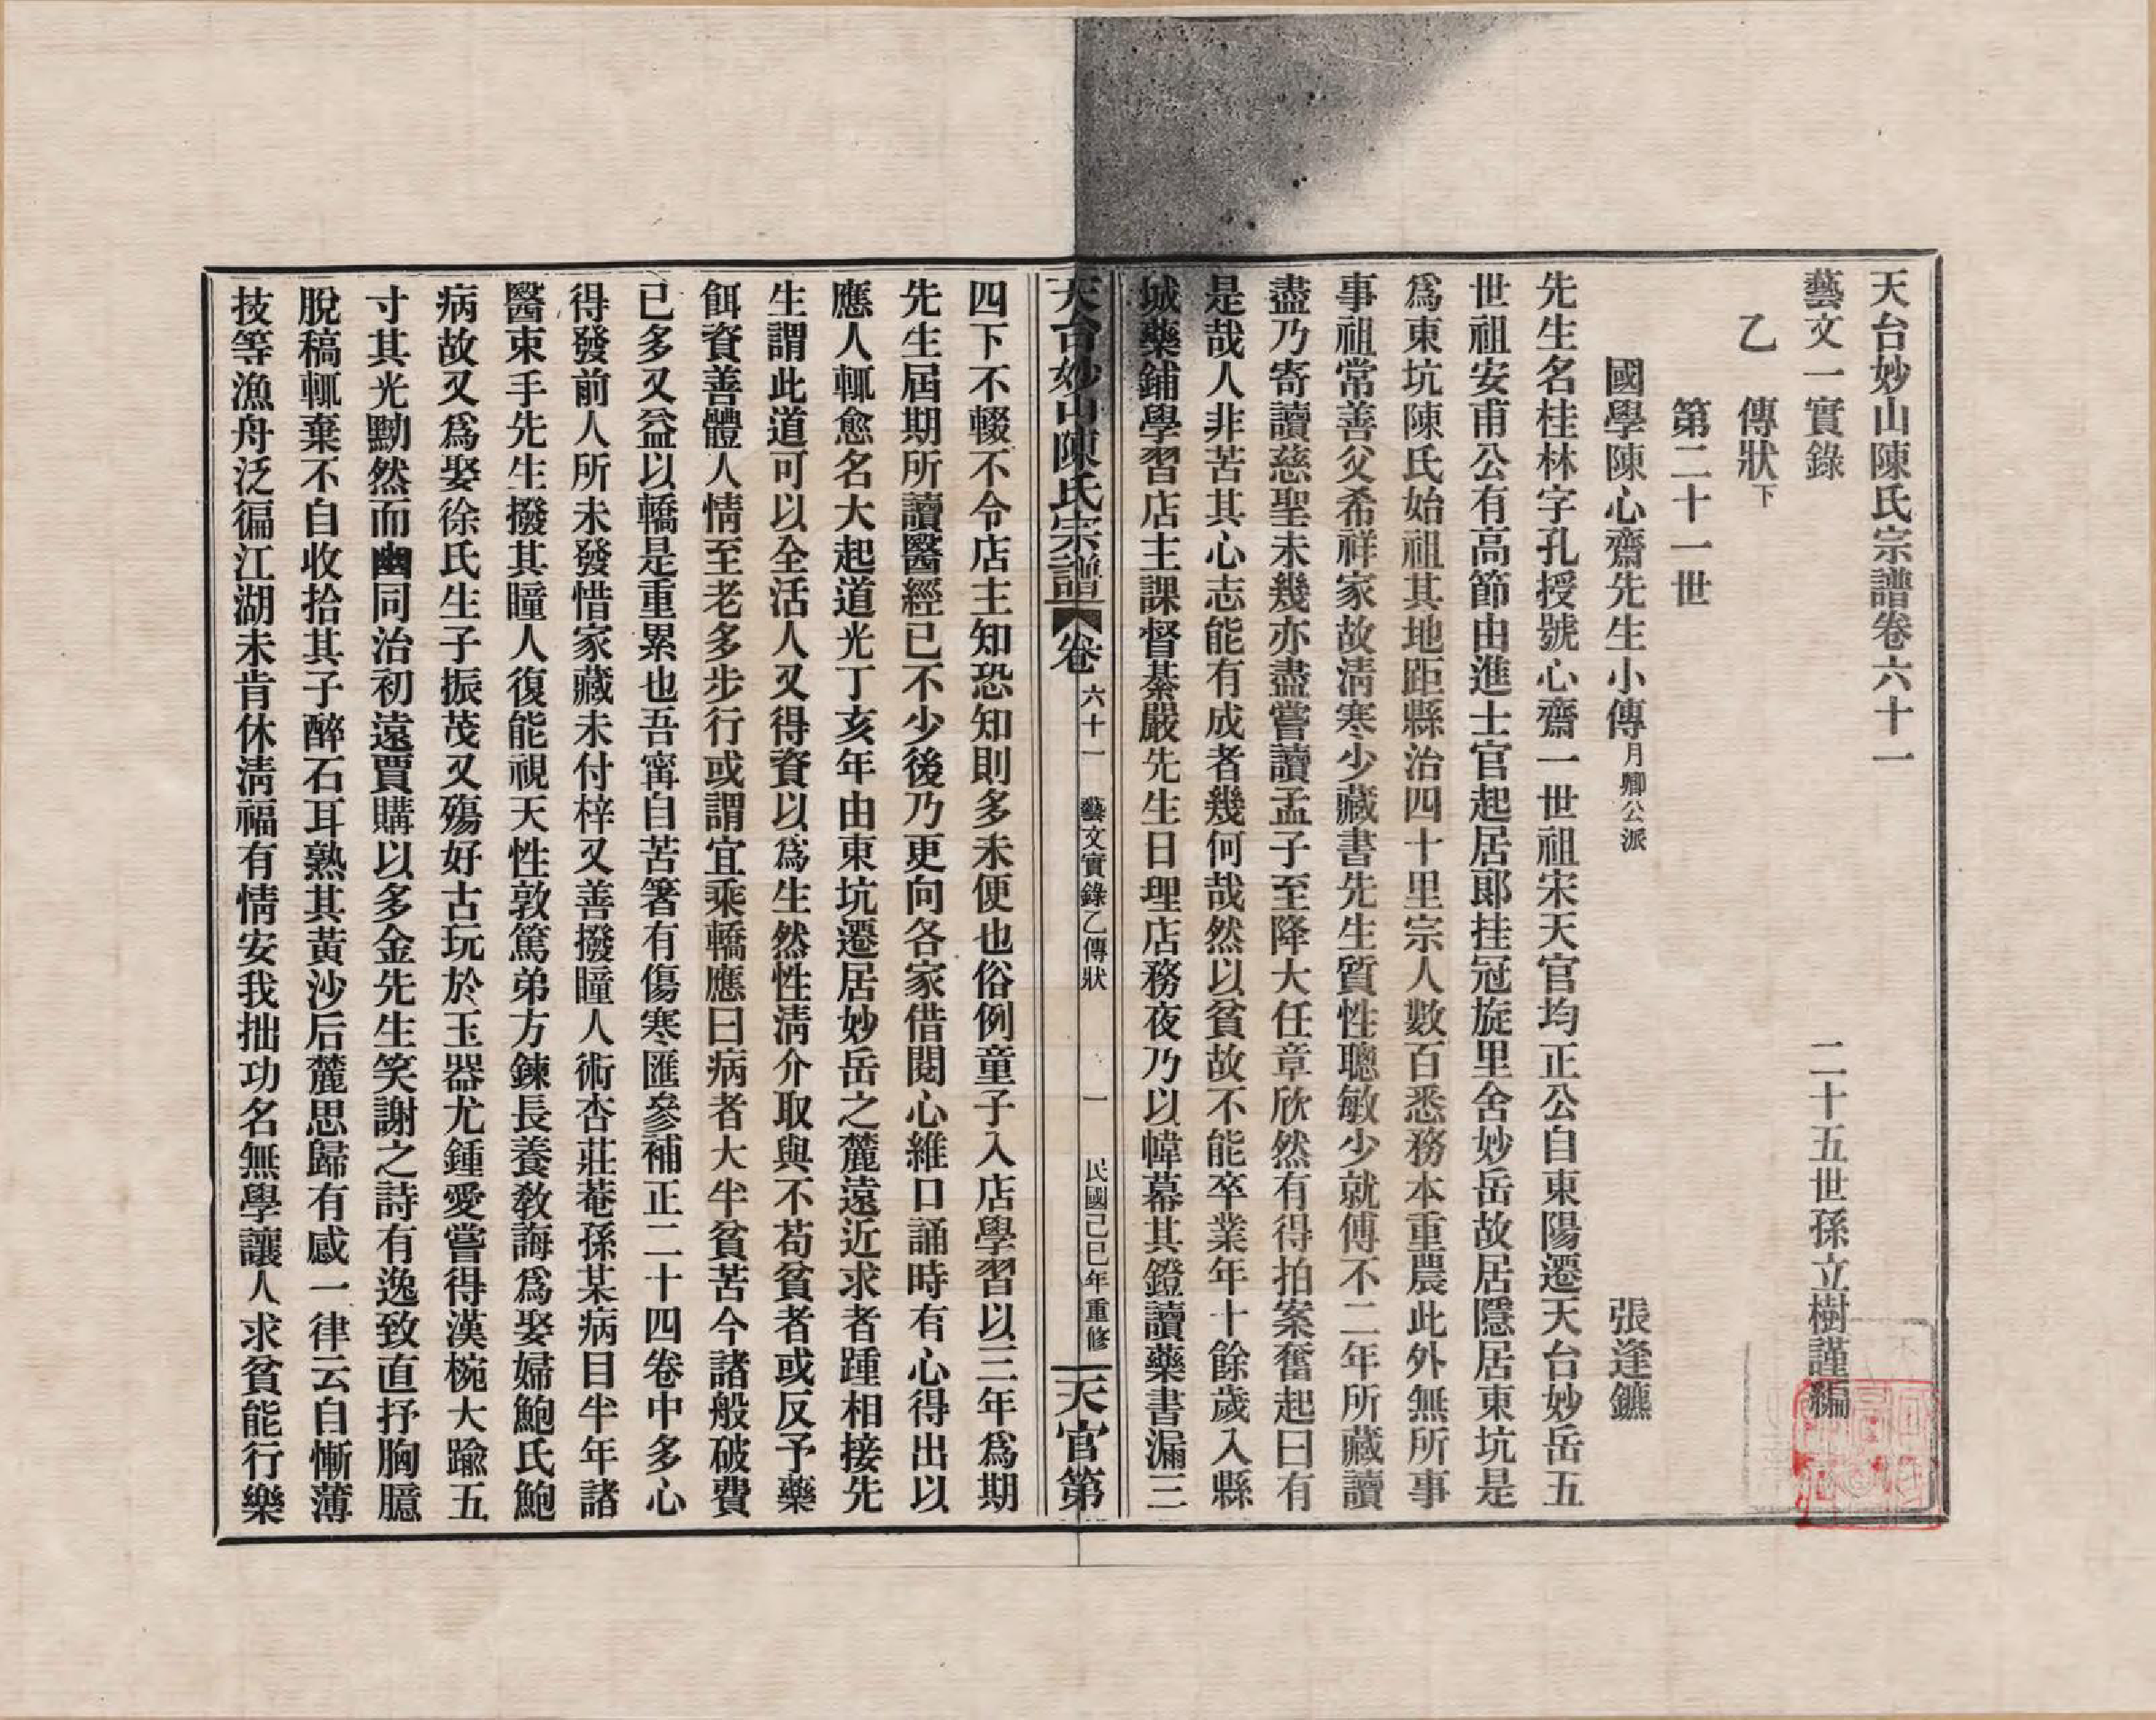 天台妙山陳氏宗譜卷六十一
藝文一實錄 二十五世孫立樹謹編
乙 傳狀下
第二十一世
國學陳心齋先生小傳月卿公派 張逢鑣
先生名桂林字孔授號心齋一世祖宋天官均正公自東陽遷天台妙岳五
世祖安甫公有高節由進士官起居郎挂冠旋里舍妙岳故居隱居東坑是
爲東坑陳氏始祖其地距縣治四十里宗人數百悉務本重農此外無所事
事祖常善父希祥家故清寒少藏書先生質性聰敏少就傅不二年所藏讀
盡乃寄讀慈聖未幾亦盡嘗讀孟子至降大任章欣然有得拍案奮起曰有
是哉人非苦其心志能有成者幾何哉然以貧故不能卒業年十餘歲入縣
城藥鋪學習店主課督綦嚴先生日理店務夜乃以幃幕其鐙讀藥書漏三
天台妙山陳氏宗譜 卷六十一 藝文實錄乙傳狀 一 民國己巳年重修 天官第
四下不輟不令店主知恐知則多未便也俗例童子入店學習以三年爲期
先生屆期所讀醫經已不少後乃更向各家借閱心維口誦時有心得出以
應人輒愈名大起道光丁亥年由東坑遷居妙岳之麓遠近求者踵相接先
生謂此道可以全活人又得資以爲生然性淸介取與不苟貧者或反予藥
餌資善體人情至老多步行或謂宜乘轎應曰病者大半貧苦今諸般破費
已多又益以轎是重累也吾甯自苦箸有傷寒匯參補正二十四卷中多心
得發前人所未發惜家藏未付梓又善撥瞳人術杏莊菴孫某病目半年諸
醫束手先生撥其瞳人復能視天性敦篤弟方鍊長養敎誨爲娶婦鮑氏鮑
病故又爲娶徐氏生子振茂又殤好古玩於玉器尤鍾愛嘗得漢椀大踰五
寸其光黝然而幽同治初遠賈購以多金先生笑謝之詩有逸致直抒胸臆
脫稿輒棄不自收拾其子醉石耳熟其黃沙后麓思歸有感一律云自慚薄
技等漁舟泛徧江湖未肯休淸福有情安我拙功名無學讓人求貧能行樂